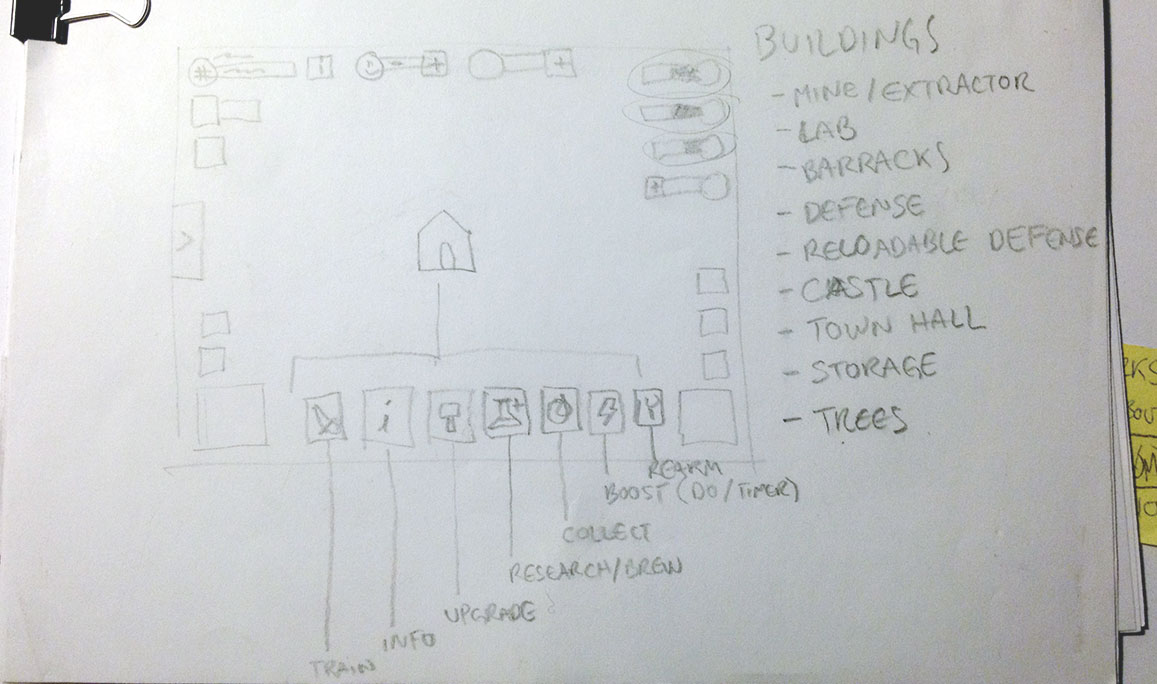 BUILDINGS
- MINE/EXTRACTOR
- LAB
- BARRACKS
- DEFENSE
- RELOADABLE DEFENSE
- CASTLE
- TOWN HALL
- STORAGE
- TREES
i
REARM
BOOST (DO/TIMER)
COLLECT
RESEARCH/BREW
UPGRADE
INFO
TRAIN